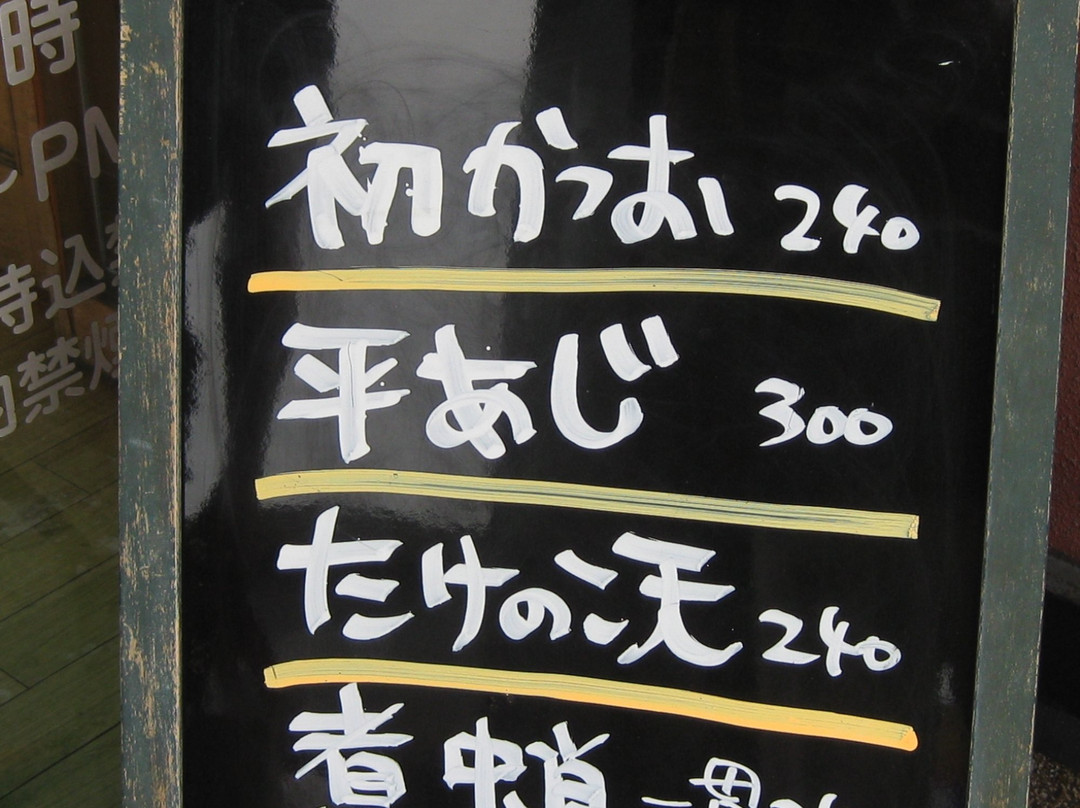 時
〜PM
持込
禁煙
初がつお 240
平あじ 300
たけのこ天 240
煮蛸一貫